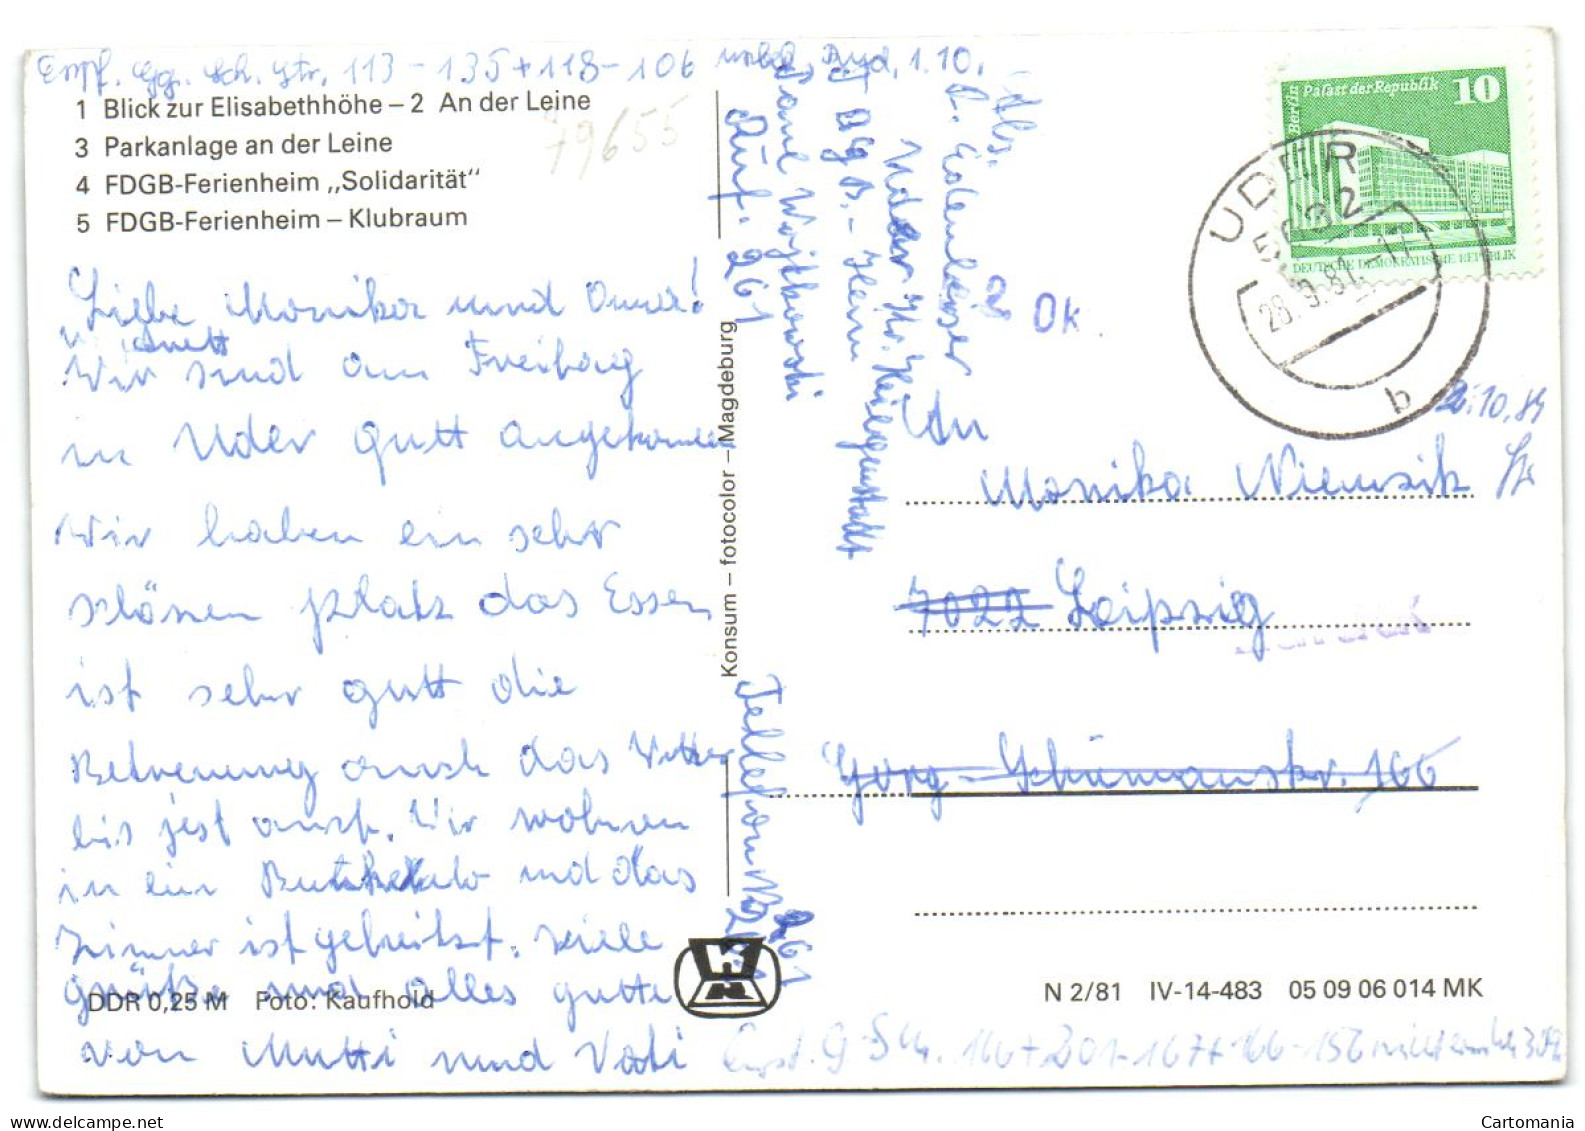 Empf. Gg. Sch. Str. 113-135+118-106 unbek, 1.10.
1 Blick zur Elisabethhöhe – 2 An der Leine
3 Parkanlage an der Leine
4 FDGB-Ferienheim „Solidarität"
5 FDGB-Ferienheim – Klubraum
79655
Liebe Monika und Oma!
Wir sind am Freitag
in Uder gutt angekommen
Wir haben ein sehr
schönen platz das Essen
ist sehr gutt die
Betreuung auch das Wetter
bis jest auch. Wir wohnen
in ein und das
Zimmer ist geheitzt. viele
grüße und alles gutte
von Mutti und Vati
DDR 0,25 M Foto: Kaufhold
Konsum – fotocolor – Magdeburg
Abs.
Uder Kr. Heiligenstadt
FDGB.-Heim
Wojtkowski
Ruf. 261
Tellefon Nr
261
Ok.
Berlin Palast der Republik 10
DEUTSCHE DEMOKRATISCHE REPUBLIK
UDER
5632
28.9.81.-17
b
2.10.81
An
Monika Niemzik
7022 Leipzig
Zurück
Gorg-Schümanstr. 166
N 2/81 IV-14-483 05 09 06 014 MK
G-Sch. 166+201-167+166-156 nicht 
Cartomania
www.delcampe.net